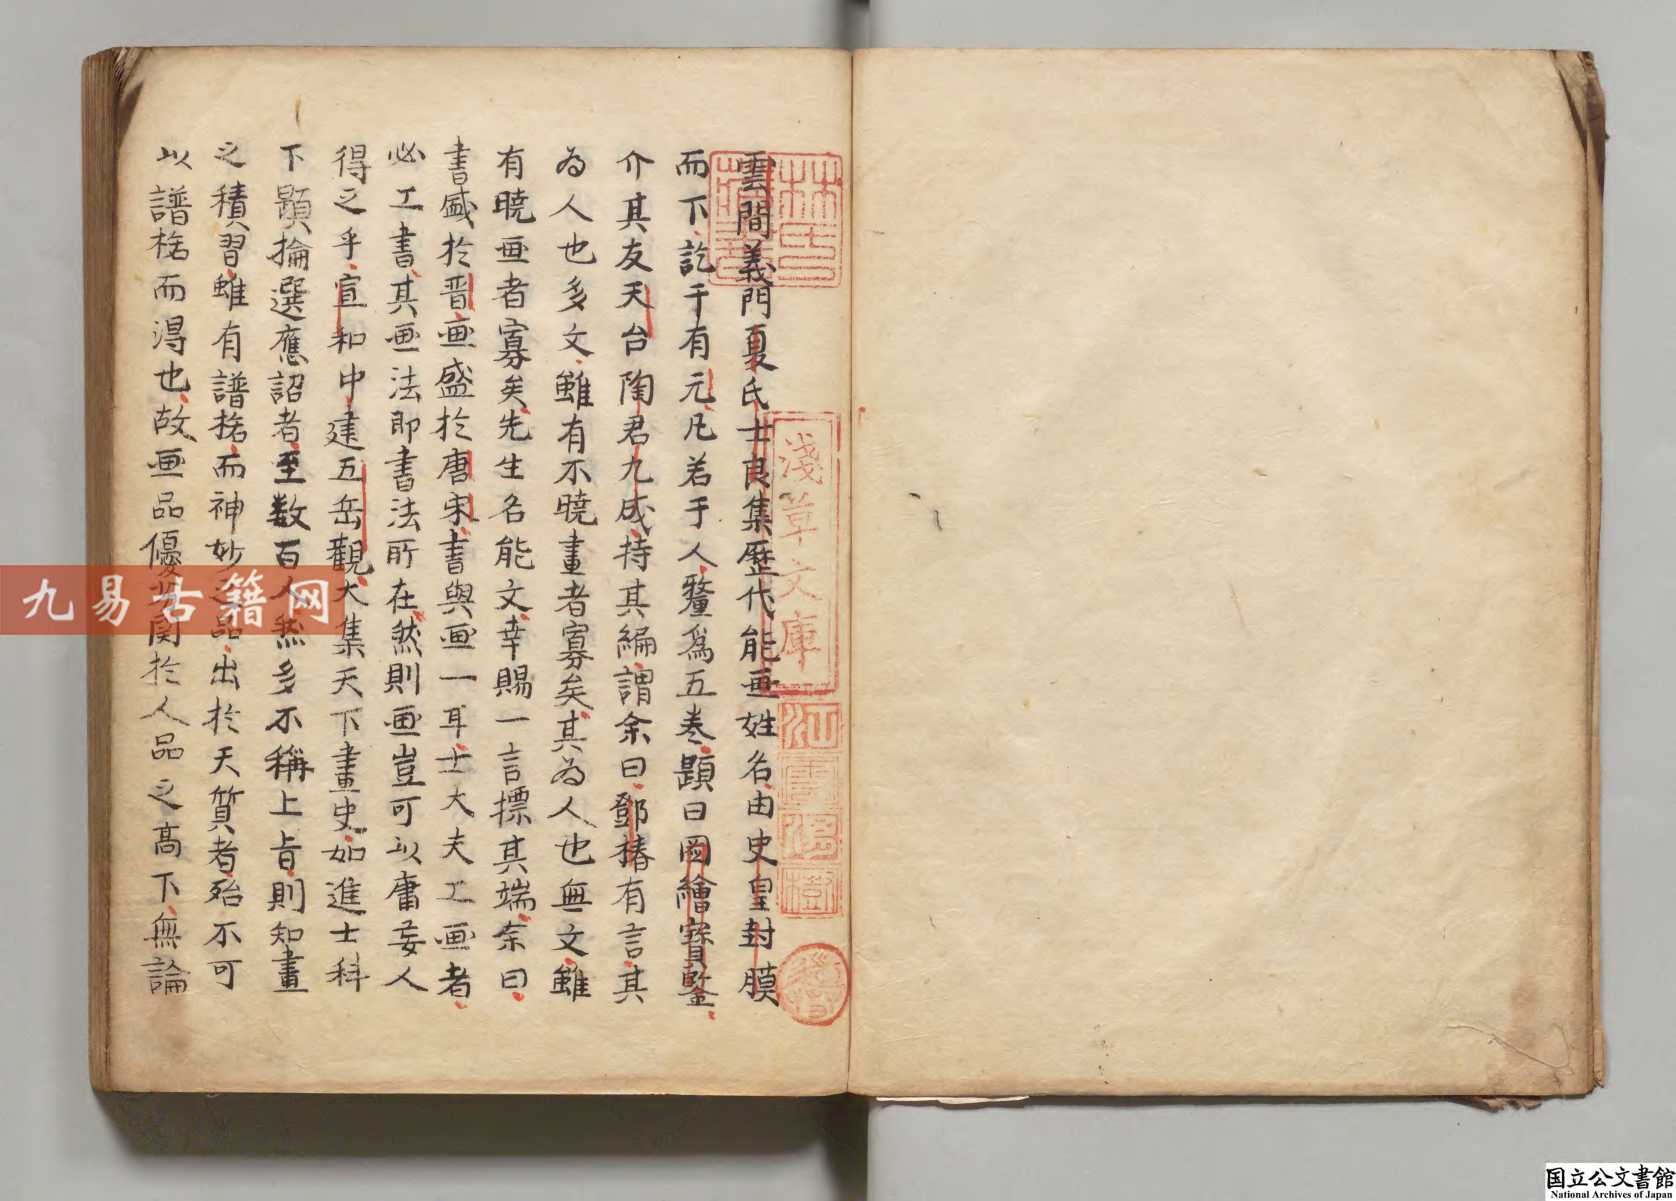 雲間義門夏氏士良集歷代能画姓名由史皇封膜
而下訖于有元凡若于人釐為五卷題曰圖繪寶鑒
介其友天台陶君九成持其編謂余曰鄧椿有言其
为人也多文雖有不曉畫者寡矣其为人也無文雖
有曉画者寡矣先生名能文幸賜一言摽其端余曰
書盛於晋画盛於唐宋書與画一耳士大夫工画者
必工書其画法即書法所在然則画豈可以庸妄人
得之乎宣和中建五岳觀大集天下畫史如進士科
下題掄選應詔者至数百人然多不稱上旨則知畫
之積習雖有譜格而神妙之品出於天質者殆不可
以譜格而得也故画品優劣関於人品之高下無論
林氏
藏書
淺草文庫
江雲渭樹
九易古籍网
国立公文書館
National Archives of Japan